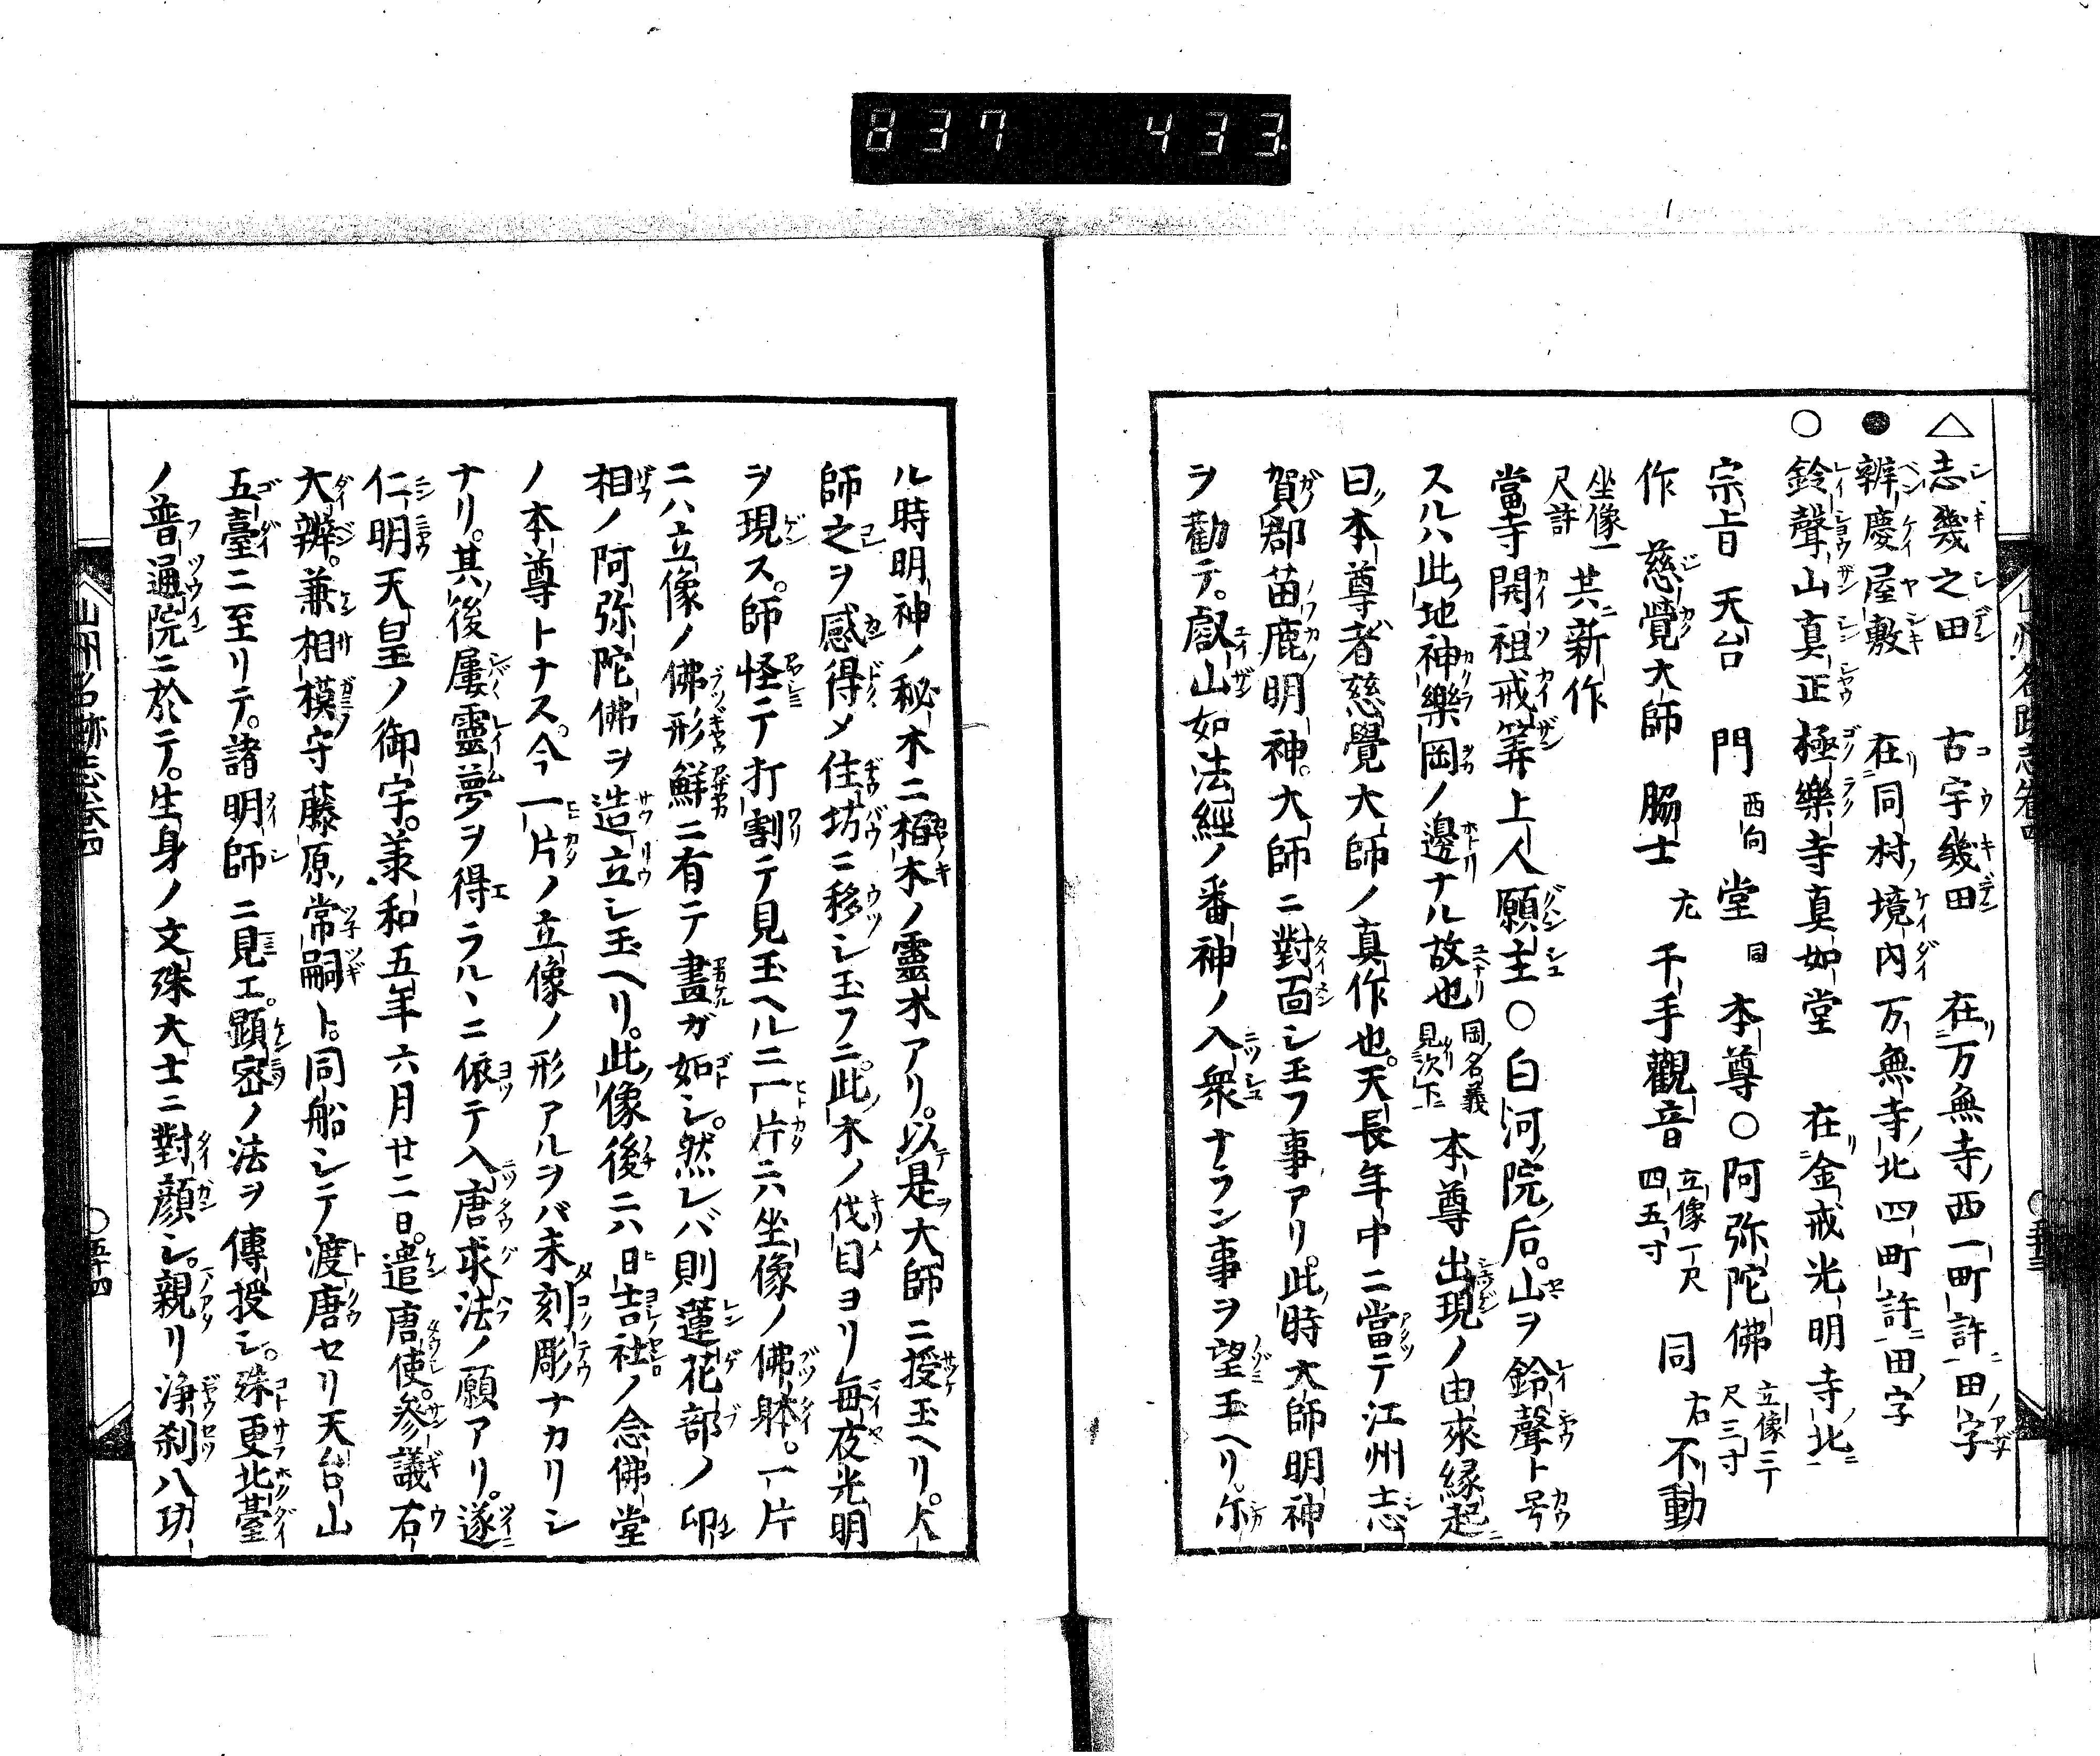 837 433
△志幾之田 古宇幾田 在万無寺西一町許田字
●辨慶屋敷 在同村境内万無寺北四町許田字
○鈴聲山真正極樂寺真如堂 在金戒光明寺北
宗旨天台 門西向 堂同 本尊○阿弥陀佛立像三尺三寸
作 慈覺大師 脇士 左千手觀音立像一尺四五寸 同右不動
坐像一尺許 共新作
當寺開祖戒筭上人願主○白河院后山ヲ鈴聲ト号
スルハ此地神樂岡ノ邊ナル故也岡名義見次下 本尊出現ノ由來縁起
曰本尊者慈覺大師ノ真作也天長年中ニ當テ江州志
賀郡苗鹿明神大師ニ對面シ玉フ事アリ此時大師明神
ヲ勸テ叡山如法經ノ番神ノ入衆ナラン事ヲ望玉ヘリ尓
ル時明神ノ秘木ニ栢木ノ靈木アリ以是大師ニ授玉ヘリ大
師之ヲ感得メ住坊ニ移シ玉フニ此木ノ伐目ヨリ毎夜光明
ヲ現ス師怪テ打割テ見玉ヘルニ一片ニハ坐像ノ佛躰一片
ニハ立像ノ佛形鮮ニ有テ畫ガ如シ然レバ則蓮花部ノ印
相ノ阿弥陀佛ヲ造立シ玉ヘリ此像後ニハ日吉社ノ念佛堂
ノ本尊トナス今一片ノ立像ノ形アルヲバ未刻彫ナカリシ
ナリ其後屢靈夢ヲ得ラルヽニ依テ入唐求法ノ願アリ遂
仁明天皇ノ御宇羕和五年六月廿二日遣唐使參議右
大辨兼相模守藤原常嗣ト同船シテ渡唐セリ天台山
五臺ニ至リテ諸明師ニ見エ顕密ノ法ヲ傳授シ殊更北臺
ノ普通院ニ於テ生身ノ文殊大士ニ對顔シ親リ浄刹八功
山州名跡志卷四 ○五十四